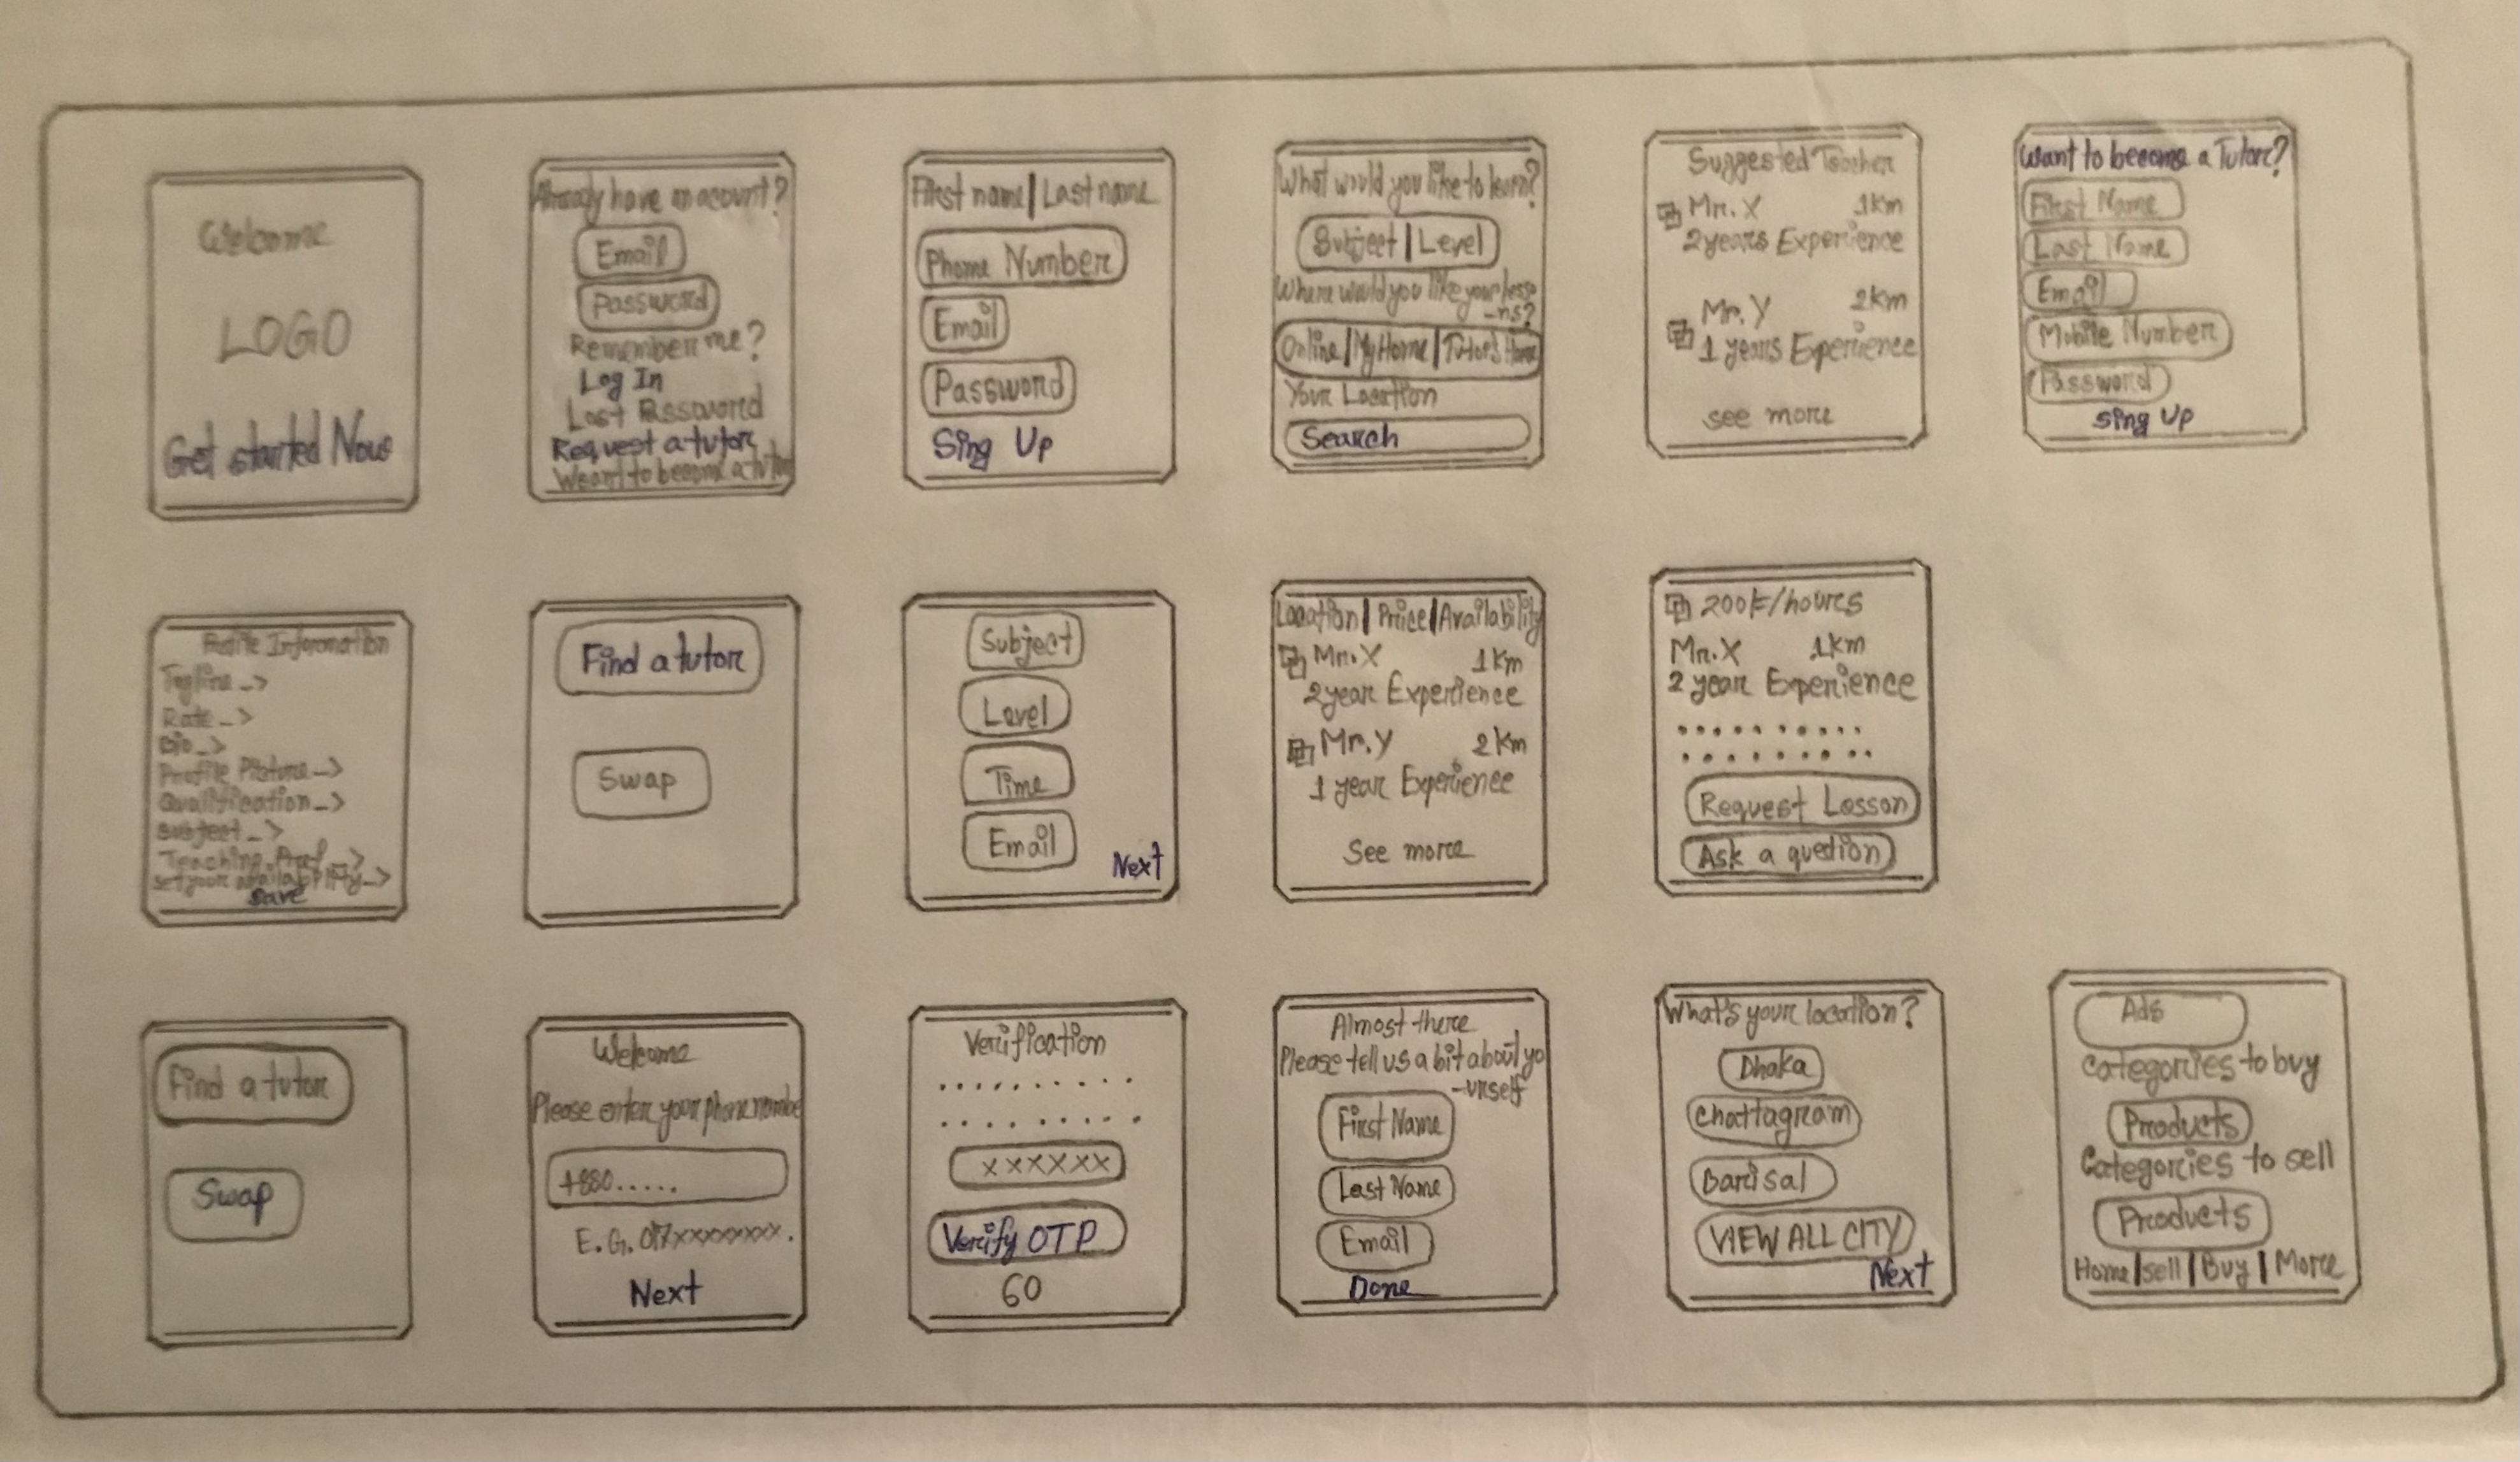 Welcome
LOGO
Get started Now
Already have an acount?
Email
Password
Remember me?
Log In
Lost Password
Request a tutor
Weant to become a tutor
First name | Last name
Phone Number
Email
Password
Sing Up
What would you like to learn?
Subject | Level
Where would you like your lesso
-ns?
Online | My Home | Tutor's Home
Your Location
Search
Suggested Teacher
Mr. X 1km
2 years Experience
Mr. Y 2km
1 years Experience
see more
Want to become a Tutor?
First Name
Last Name
Email
Mobile Number
Password
Sing Up
Profile Information
Tagline -->
Rate -->
Bio -->
Profile Picture -->
Qualification -->
Subject -->
Teaching Pref -->
set your availability -->
Save
Find a tutor
Swap
Subject
Level
Time
Email
Next
Location | Price | Availability
Mr. X 1km
2 year Experience
Mr. Y 2km
1 year Experience
See more
200৳/hours
Mr. X 1km
2 year Experience
Request Lesson
Ask a question
Find a tutor
Swap
Welcome
Please enter your phone numbe
+880.....
E.G. 017xxxxxxxx.
Next
Verification
xxxxxx
Verify OTP
60
Almost there
Please tell us a bit about yo
-urself
First Name
Last Name
Email
Done
What's your location?
Dhaka
Chattagram
Barisal
VIEW ALL CITY
Next
Ads
Categories to buy
Products
Categories to sell
Products
Home | sell | Buy | More